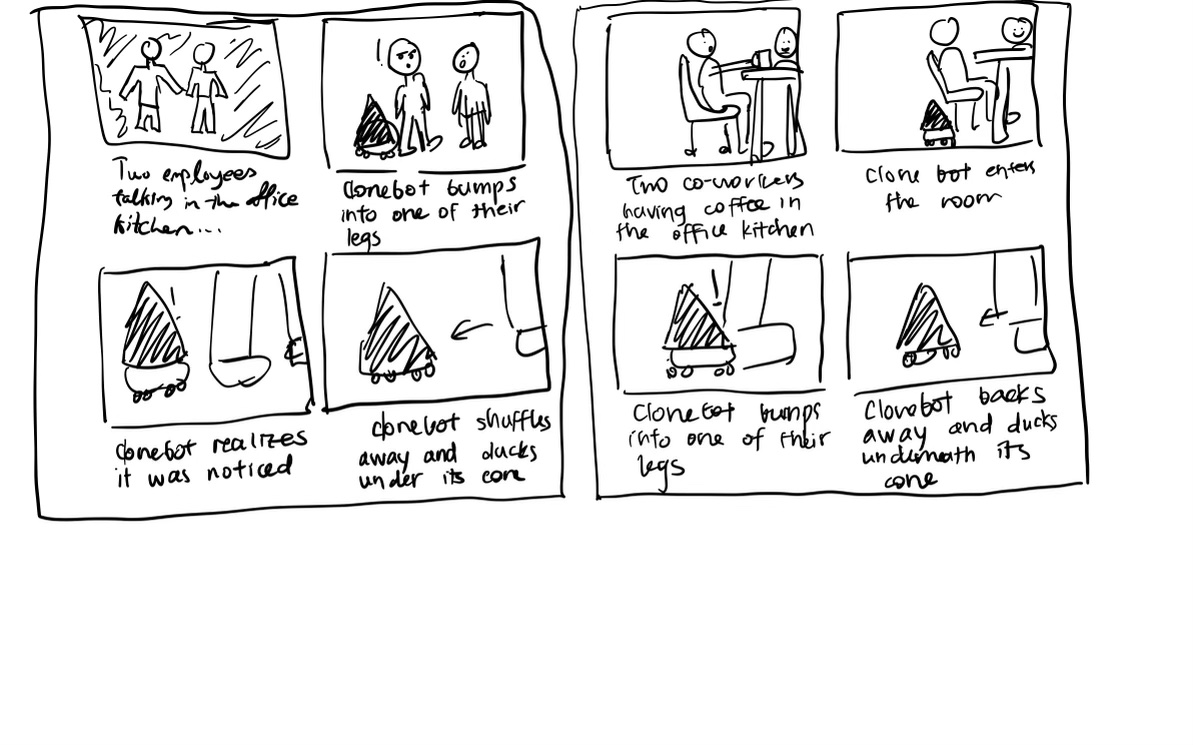 Two employees
talking in the office
kitchen...
Clonebot bumps
into one of their
legs
Clonebot realizes
it was noticed
Clonebot shuffles
away and ducks
under its cone
Two co-workers
having coffee in
the office kitchen
Clone bot enters
the room
Clonebot bumps
into one of their
legs
Clonobot backs
away and ducks
underneath its
cone